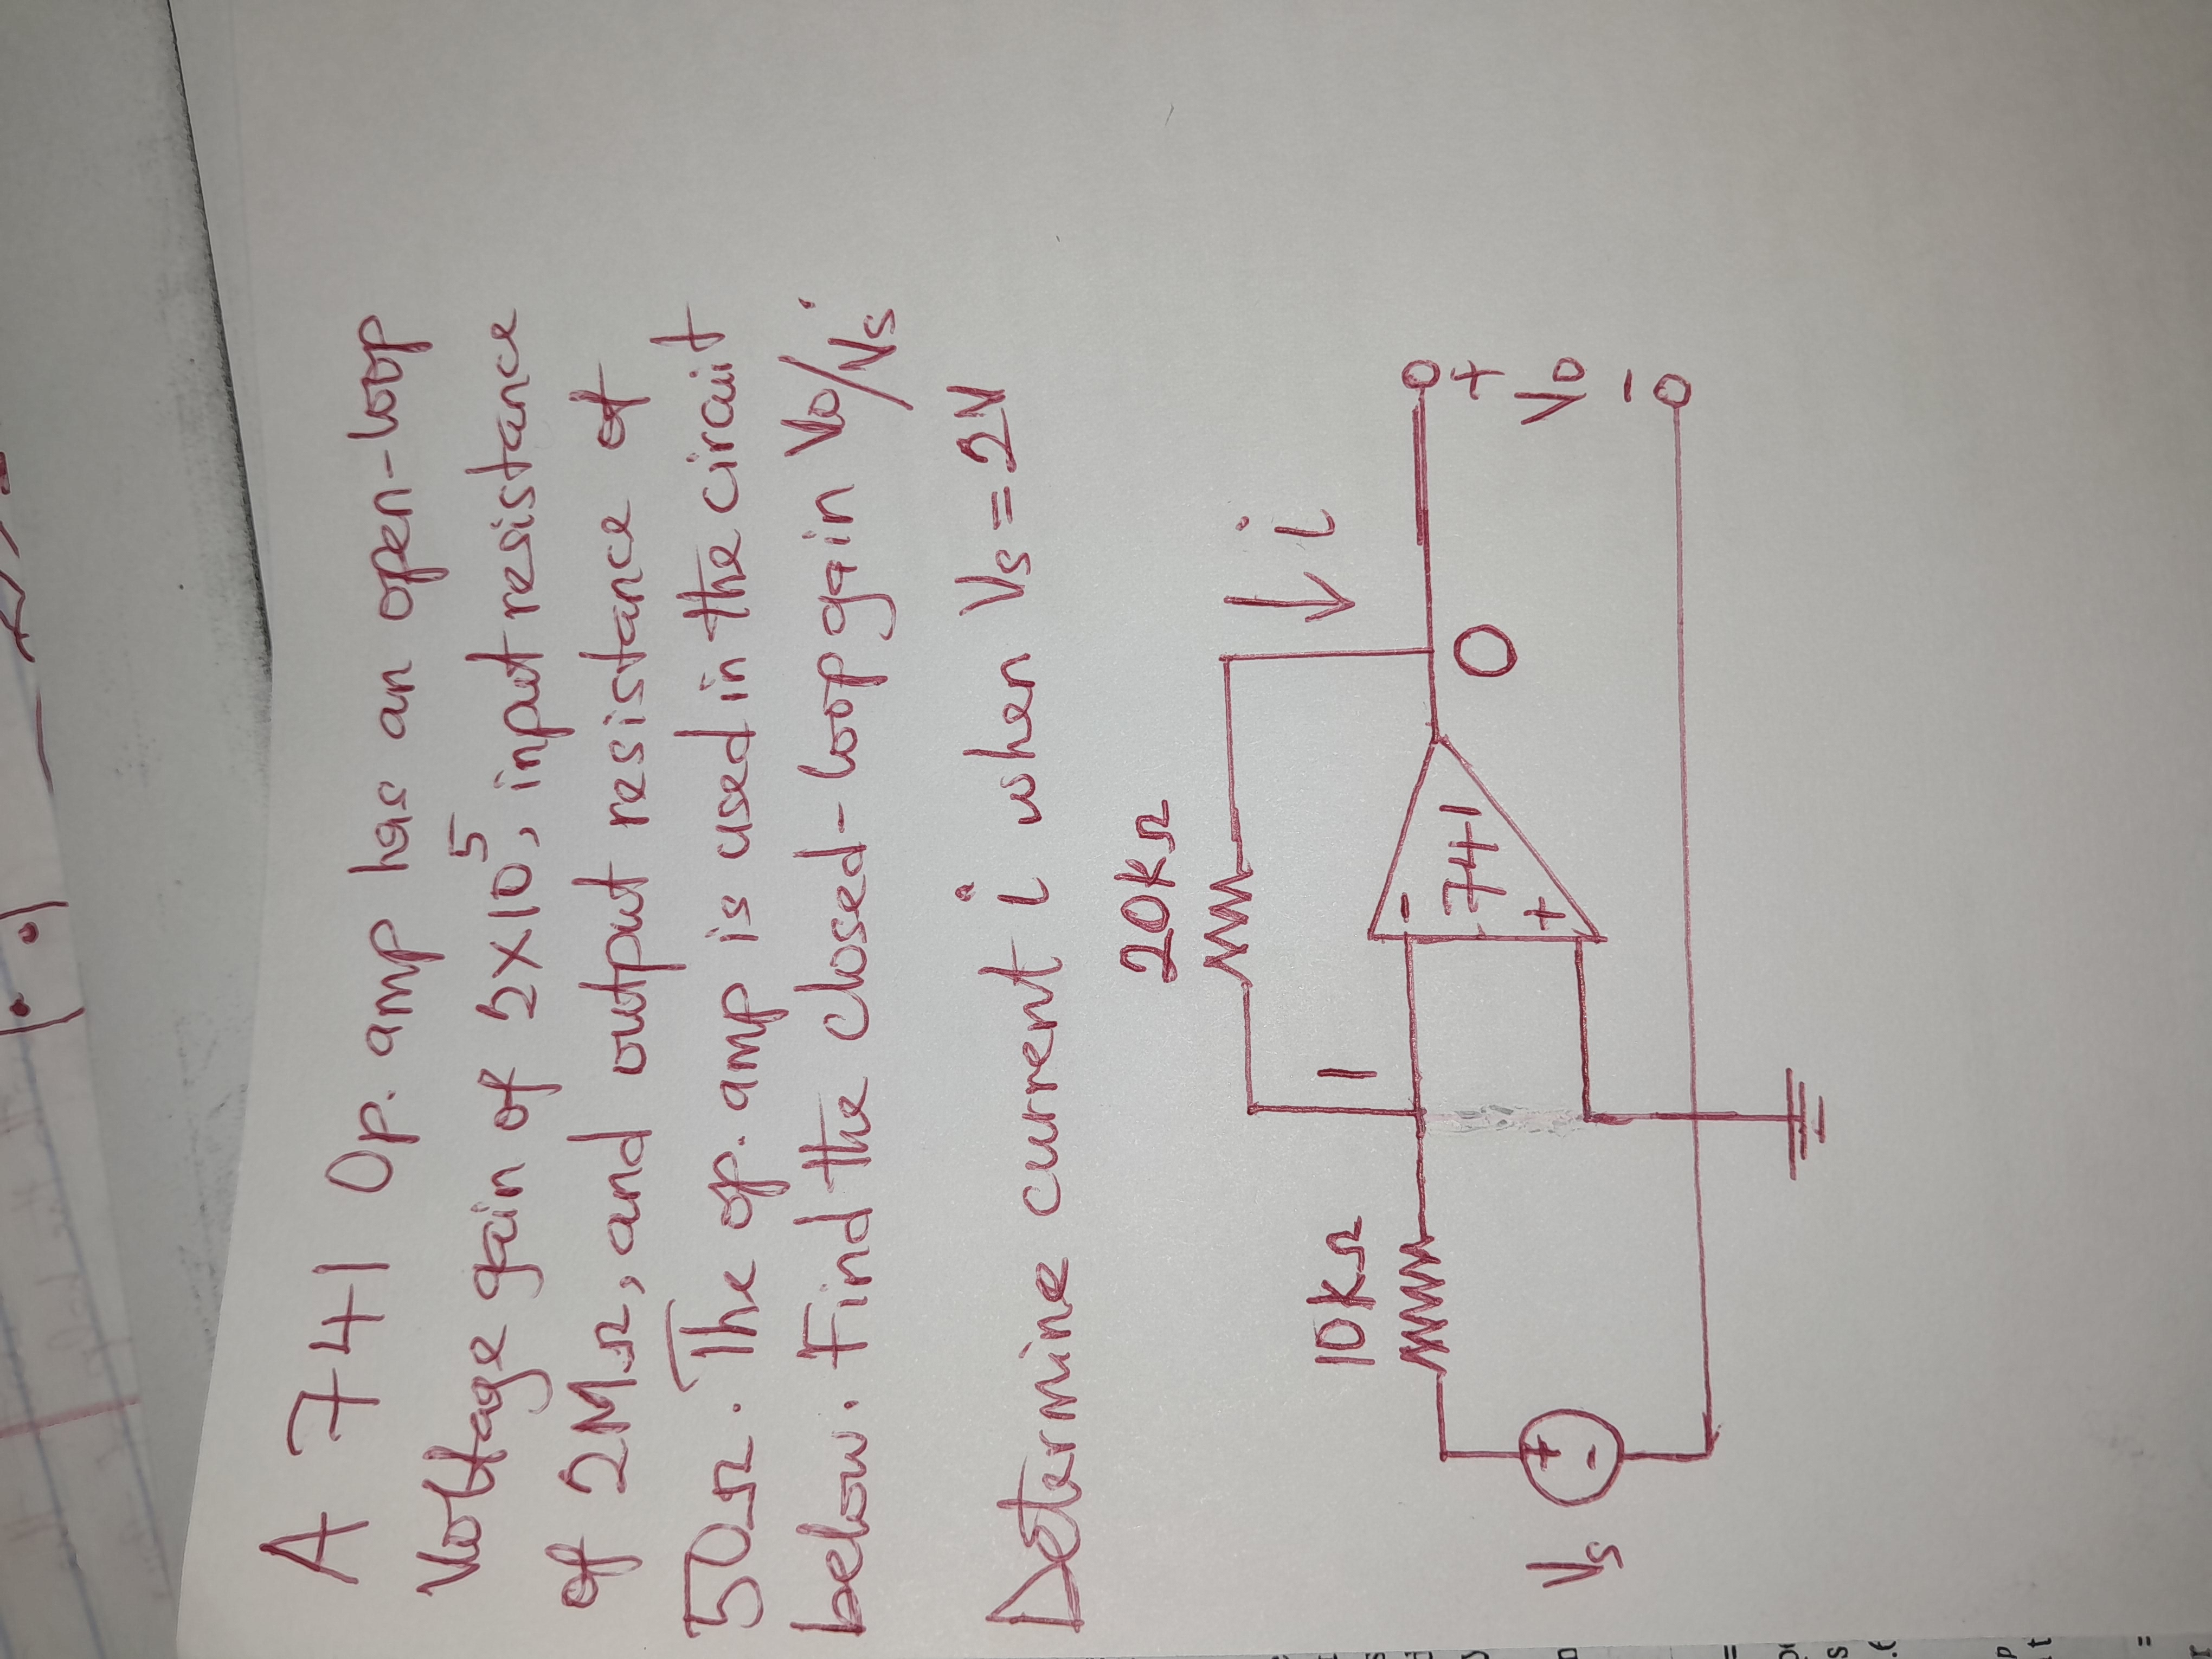 A 741 Op. amp has an open-loop
Voltage gain of 2×10⁵, input resistance
of 2MΩ, and output resistance of
50Ω. The op. amp is used in the circuit
below. Find the closed-loop gain Vo/Vs.
Determine current i when Vs = 2V
20KΩ
i
10KΩ
1
-
741
+
O
+
Vo
-
Vs
+
-